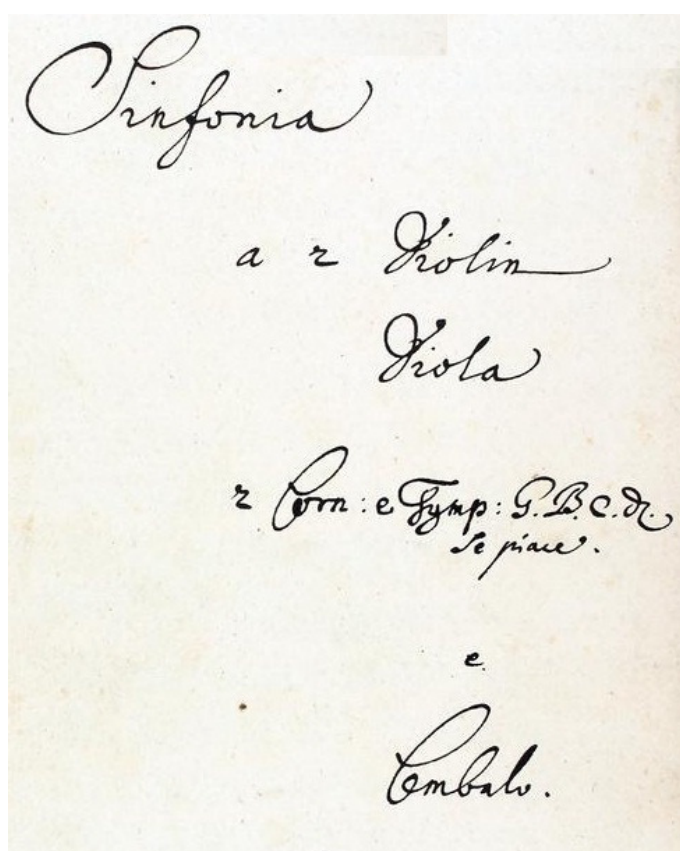 Sinfonia
a 2 Violin
Viola
2 Corn: e Tymp: G. B. C. D.
Se piace.
e
Cembalo.